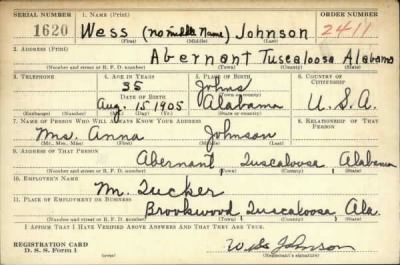 SERIAL NUMBER 1. NAME (Print) ORDER NUMBER
1620 Wess (no middle Name) Johnson 2411
(First) (Middle) (Last)
2. ADDRESS (Print)
Abernant Tuscaloosa Alabama
(Number and street or R. F. D. number) (Town) (County) (State)
3. TELEPHONE 4. AGE IN YEARS 5. PLACE OF BIRTH 6. COUNTRY OF CITIZENSHIP
35 Johns
DATE OF BIRTH (Town or county)
Aug. 15 1905 Alabama U.S.A.
(Exchange) (Number) (Mo.) (Day) (Yr.) (State or country)
7. NAME OF PERSON WHO WILL ALWAYS KNOW YOUR ADDRESS 8. RELATIONSHIP OF THAT PERSON
Mrs. Anna Johnson
(Mr., Mrs., Miss) (First) (Middle) (Last)
9. ADDRESS OF THAT PERSON
Abernant Tuscaloosa Alabama
(Number and street or R. F. D. number) (Town) (County) (State)
10. EMPLOYER'S NAME
M. Tucker
11. PLACE OF EMPLOYMENT OR BUSINESS
Brookwood Tuscaloosa, Ala.
(Number and street or R. F. D. number) (Town) (County) (State)
I AFFIRM THAT I HAVE VERIFIED ABOVE ANSWERS AND THAT THEY ARE TRUE.
REGISTRATION CARD
D. S. S. Form 1 Johnson
(Registrant's signature)